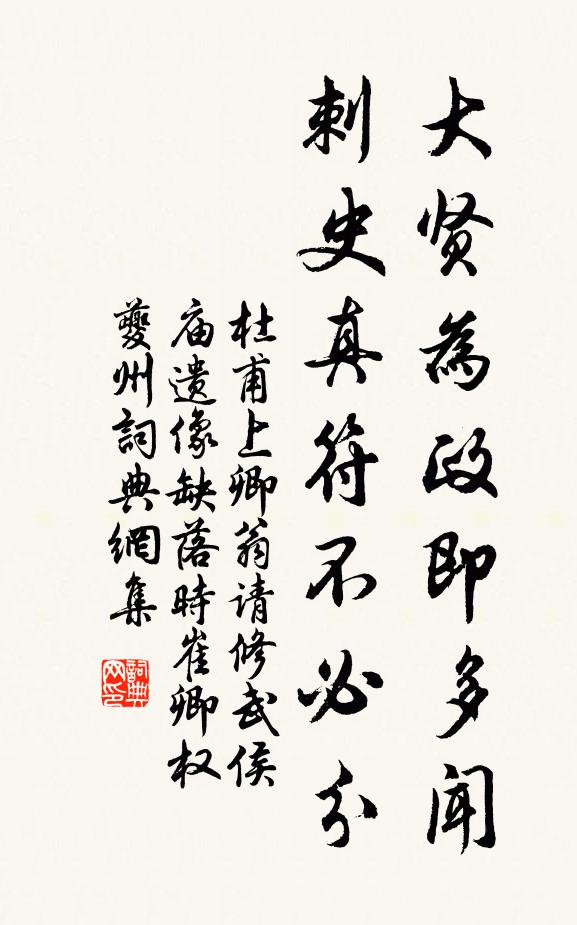 大贤為政即多闻
刺史真符不必分
杜甫上卿翁请修武侯
庙遗像缺落時崔卿权
夔州詞典網集
詞典
网印